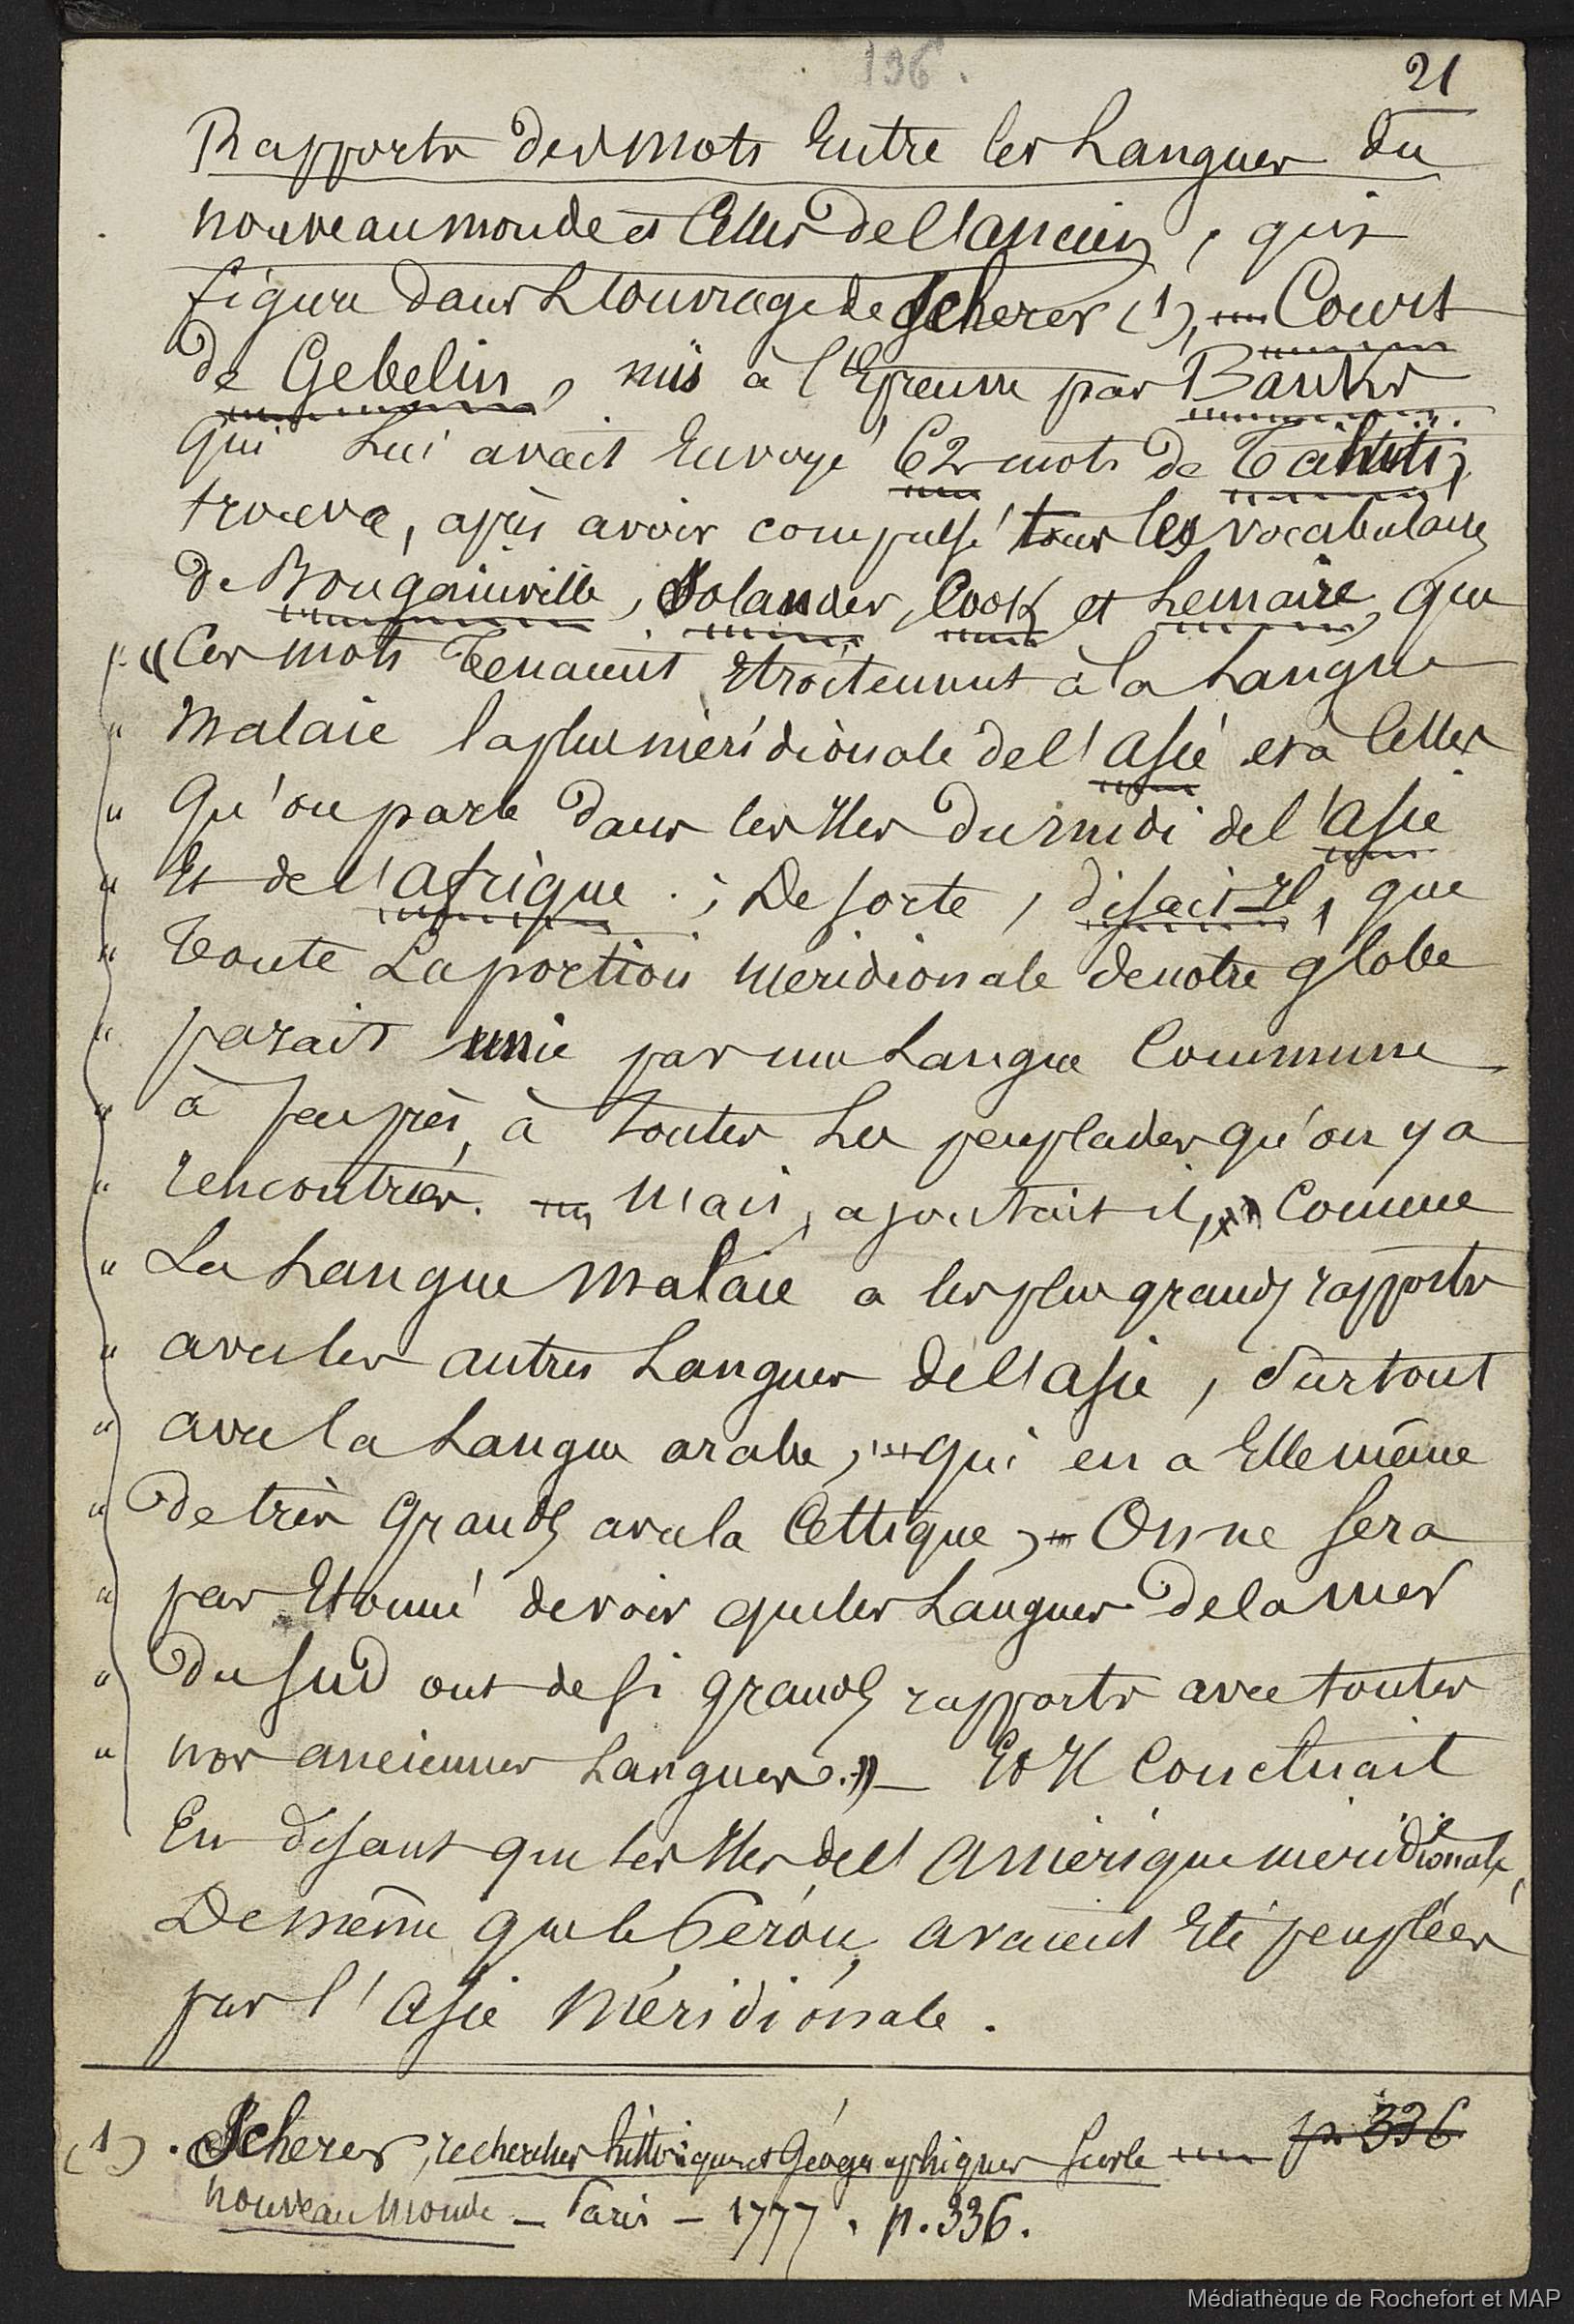 196.
21
Rapports des mots Entre les Langues du
nouveau monde et Celles de l'ancien, qui
figure dans L'ouvrage de Scherer (1), Court
de Gebelin, mis à l'Epreuve par Banks
qui Lui avait Envoyé 62 mots de Tahiti,
trouva, après avoir compulsé tous les vocabulaires
de Bougainville, Solander, Cook et Lemaire, que
"Ces mots Tenaient Etroitement à la Langue
" Malaie la plus méridionale de l'Asie et à Celles
" Qu'on parle dans les Iles du midi de l'Asie
" Et de l'Afrique ; De sorte, disait-Il, que
" Toute La portion méridionale de notre globe
" parait unie par une Langue Commune
" à peu près, à toutes Les peuplades qu'on y a
" rencontrées. Mais, ajoutait il, Comme
" La Langue Malaie a les plus grands rapports
" avec les autres Langues de l'Asie, Surtout
" avec la Langue arabe, qui en a Elle même
" de très Grands avec la Celtique, On ne sera
" pas Etonné de voir que les Langues de la mer
" du Sud ont de si grands rapports avec toutes
" nos anciennes Langues." — Et Il Concluait
En disant que les Iles de l'Amérique méridionale,
De même que le Pérou, avaient Eté peuplées
par l'Asie Méridionale.
(1). Scherer, recherches historiques et Géographiques sur le p. 336
nouveau Monde — Paris — 1777. p. 336.
Médiathèque de Rochefort et MAP